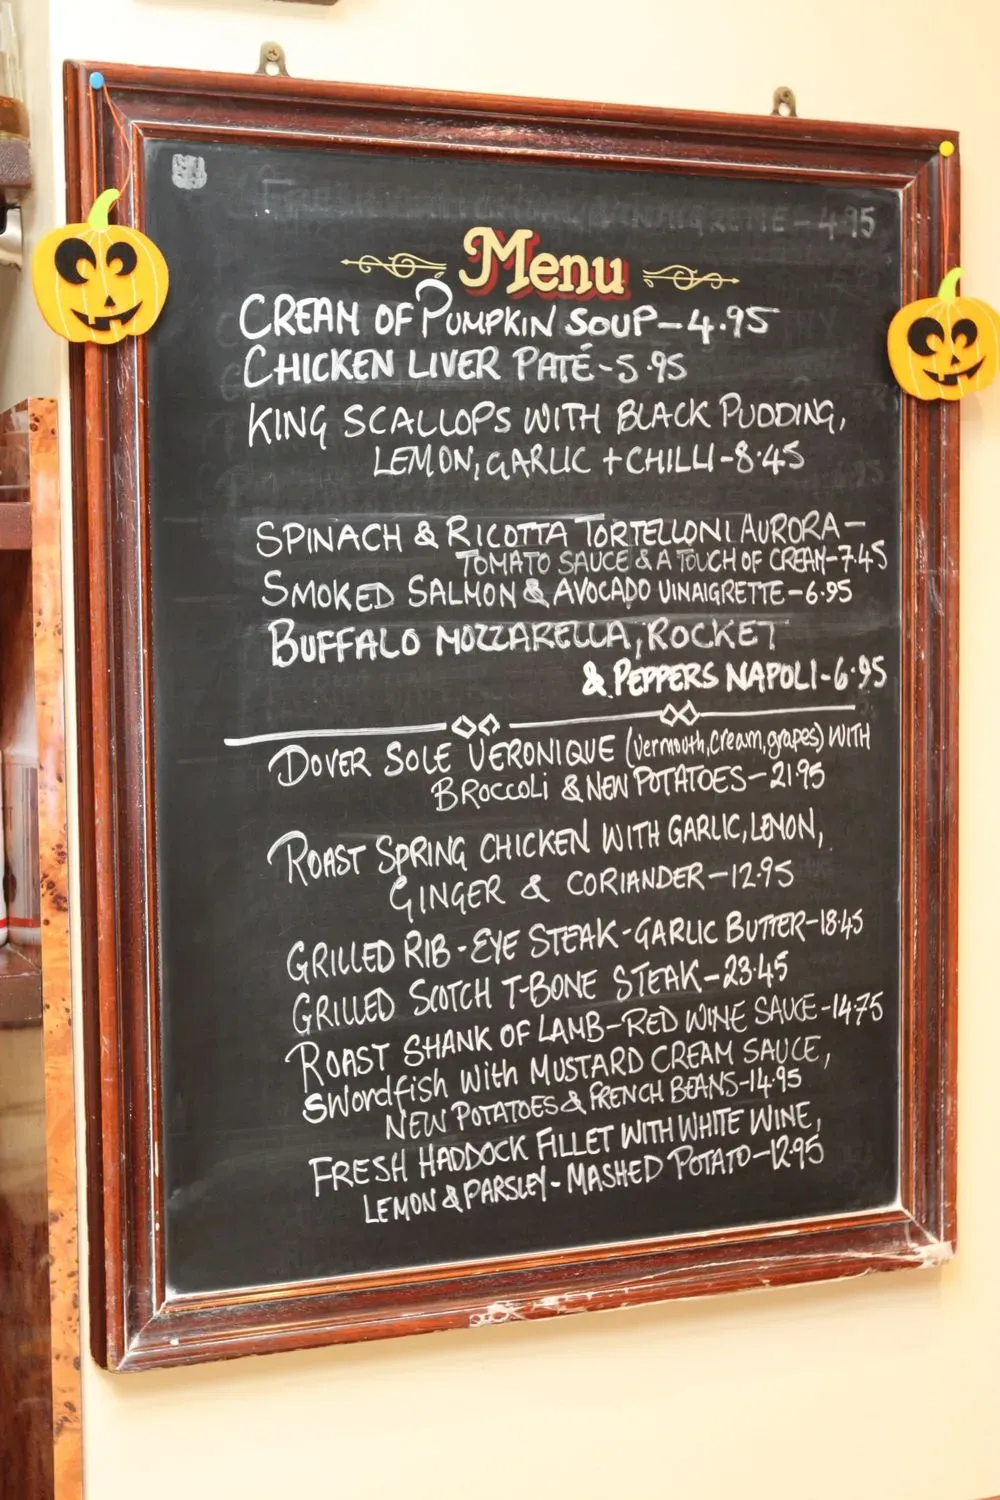 VINAIGRETTE - 4.95
Menu
CREAM OF PUMPKIN SOUP - 4.95
CHICKEN LIVER PATÉ - 5.95
KING SCALLOPS WITH BLACK PUDDING,
LEMON, GARLIC + CHILLI - 8.45
SPINACH & RICOTTA TORTELLONI AURORA -
TOMATO SAUCE & A TOUCH OF CREAM - 7.45
SMOKED SALMON & AVOCADO VINAIGRETTE - 6.95
BUFFALO MOZZARELLA, ROCKET
& PEPPERS NAPOLI - 6.95
DOVER SOLE VERONIQUE (vermouth, cream, grapes) WITH
BROCCOLI & NEW POTATOES - 21.95
ROAST SPRING CHICKEN WITH GARLIC, LEMON,
GINGER & CORIANDER - 12.95
GRILLED RIB-EYE STEAK - GARLIC BUTTER - 18.45
GRILLED SCOTCH T-BONE STEAK - 23.45
ROAST SHANK OF LAMB - RED WINE SAUCE - 14.75
SWORDFISH WITH MUSTARD CREAM SAUCE,
NEW POTATOES & FRENCH BEANS - 14.95
FRESH HADDOCK FILLET WITH WHITE WINE,
LEMON & PARSLEY - MASHED POTATO - 12.95